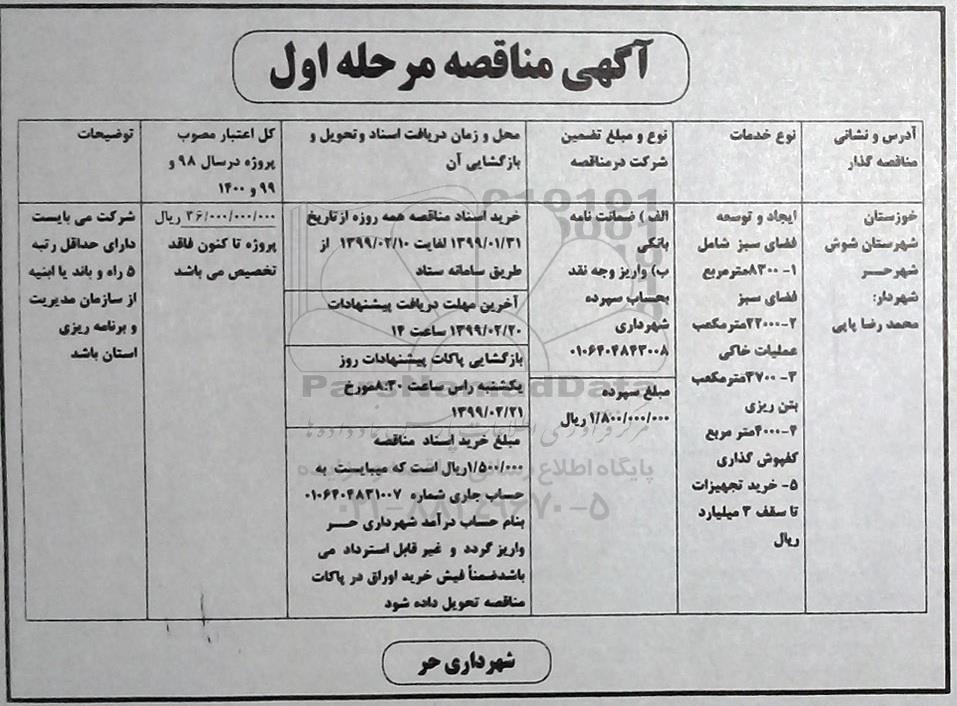 آگهی مناقصه مرحله اول
آدرس و نشانی
مناقصه گذار
نوع خدمات
نوع و مبلغ تضمین
شرکت درمناقصه
محل و زمان دریافت اسناد وتحویل و
بازگشایی آن
کل اعتبار مصوب
پروژه درسال ۹۸ و
۹۹ و ۱۴۰۰
توضیحات
خوزستان
شهرستان شوش
شهرحــر
شهردار:
محمد رضا پاپی
ایجاد و توسعه
فضای سبز شامل
۱- ۸۳۰۰مترمربع
فضای سبز
۲-۲۲۰۰۰مترمکعب
عملیات خاکی
۳- ۳۷۰۰مترمکعب
بتن ریزی
۴-۴۰۰۰متر مربع
کفپوش گذاری
۵- خرید تجهیزات
تا سقف ۳ میلیارد
ریال
الف ) ضمانت نامه
بانکی
ب) واریز وجه نقد
بحساب سپرده
شهرداری
۰۱۰۶۴۰۴۸۴۳۰۰۸
مبلغ سپرده
۱/۸۰۰/۰۰۰/۰۰۰ ریال
خرید اسناد مناقصه همه روزه ازتاریخ
۱۳۹۹/۰۱/۳۱ لغایت ۱۳۹۹/۰۲/۱۰ از
طریق سامانه ستاد
آخرین مهلت دریافت پیشنهادات
۱۳۹۹/۰۲/۲۰ ساعت ۱۴
بازگشایی پاکات پیشنهادات روز
یکشنبه راس ساعت ۸:۳۰مورخ
۱۳۹۹/۰۲/۲۱
مبلغ خرید اسناد مناقصه
۱/۵۰۰/۰۰۰ریال است که میبایست به
حساب جاری شماره ۰۱۰۶۴۰۴۸۳۱۰۰۷
بنام حساب درآمد شهرداری حــر
واریز گردد و غیر قابل استرداد می
باشدضمناً فیش خرید اوراق در پاکات
مناقصه تحویل داده شود
۳۶/۰۰۰/۰۰۰/۰۰۰ ریال
پروژه تا کنون فاقد
تخصیص می باشد
شرکت می بایست
دارای حداقل رتبه
۵ راه و باند یا ابنیه
از سازمان مدیریت
و برنامه ریزی
استان باشد
شهرداری حر
ParsNamadData
پایگاه اطلاع رسانی
۰۲۱-۸۸۳۴۹۶۷۰-۵